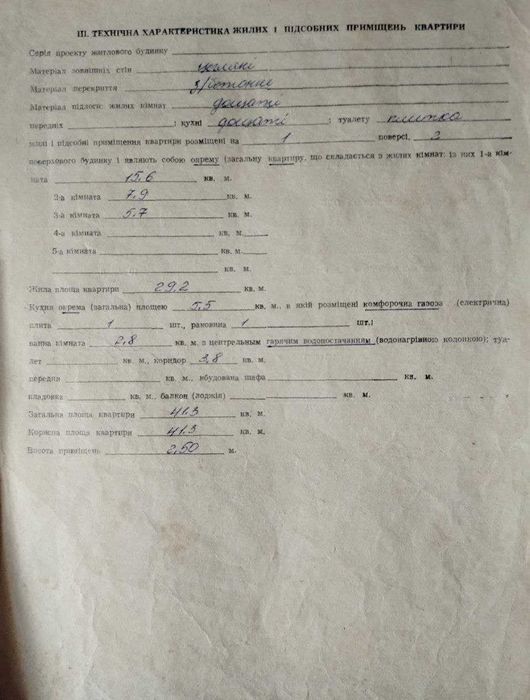 III. ТЕХНІЧНА ХАРАКТЕРИСТИКА ЖИЛИХ І ПІДСОБНИХ ПРИМІЩЕНЬ КВАРТИРИ
Серія проекту житлового будинку
Матеріал зовнішніх стін цегляні
Матеріал перекриття з/бетонне
Матеріал підлоги: жилих кімнат дощаті
передніх ; кухні дощаті ; туалету плитка
жилі і підсобні приміщення квартири розміщені на 1 поверсі, 2
поверхового будинку і являють собою окрему (загальну квартиру, що складається з жилих кімнат: із них 1-а кім-
ната 15,6 кв. м.
2-а кімната 7,9 кв. м.
3-а кімната 5,7 кв. м.
4-а кімната кв. м.
5-а кімната кв. м.
кв. м.
Жила площа квартири 29,2 кв. м.
Кухня окрема (загальна) площею 5,5 кв. м., в якій розміщені комфорочна газова (електрична)
плита 1 шт., раковина 1 шт.;
ванна кімната 2,8 кв. м. з центральным гарячим водопостачанням (водонагрівною колонкою); туа-
лет кв. м., коридор 3,8 кв. м.
передня кв. м., вбудована шафа кв. м.
кладовка кв. м., балкон (лоджія) кв. м.
Загальна площа квартири 41,3 кв. м.
Корисна площа квартири 41,3 кв. м.
Висота приміщень 2,50 м.